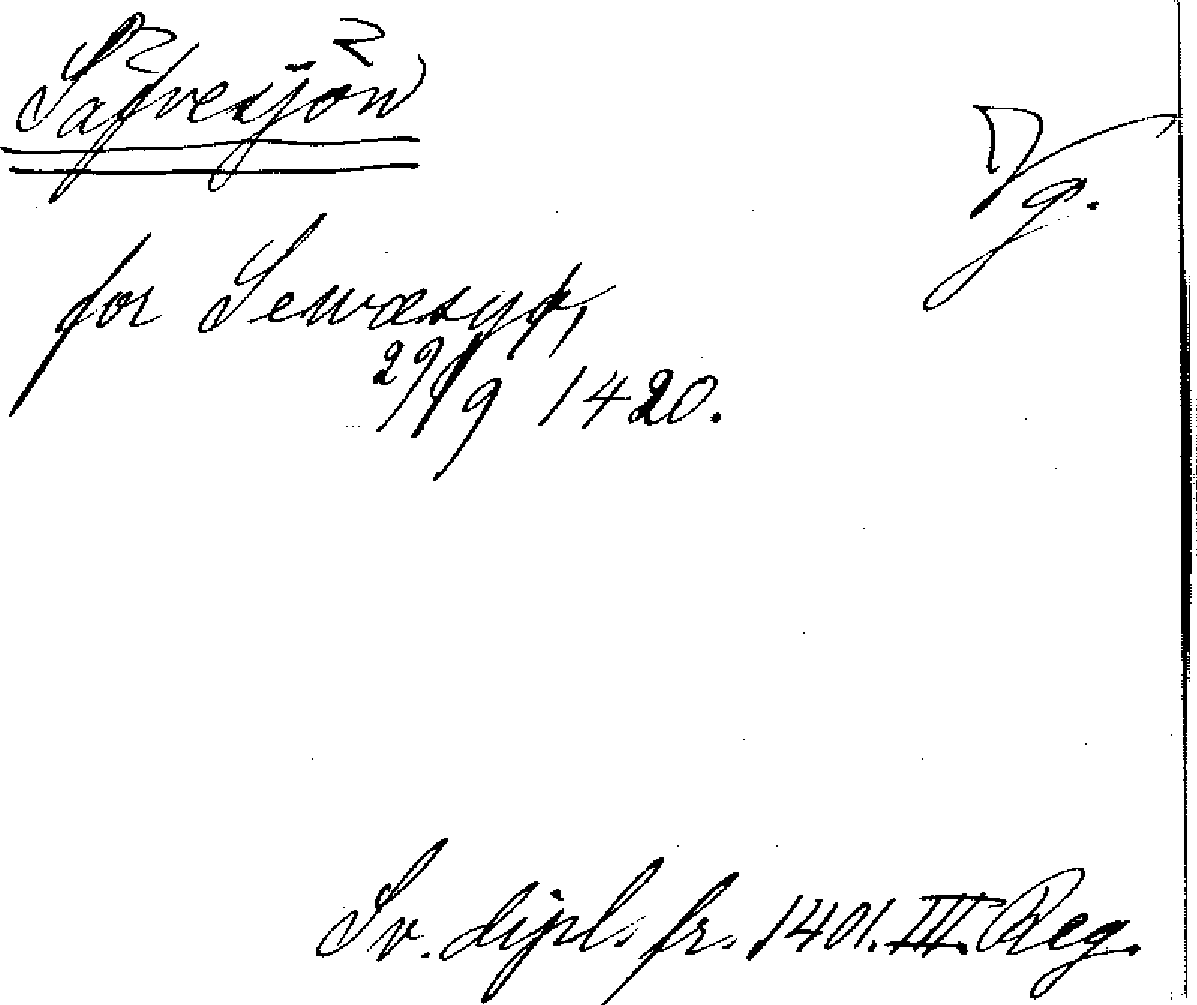 Säfvesjön)
Vg.
for Sewæsyø,
29/9 1420.
Sv. dipl. fr. 1401. III. Reg.